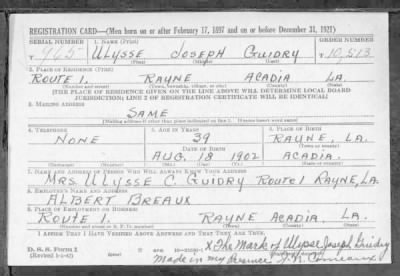 REGISTRATION CARD—(Men born on or after February 17, 1897 and on or before December 31, 1921)
SERIAL NUMBER 1. NAME (Print) ORDER NUMBER
T 965 ULYSSE JOSEPH GUIDRY T 10,513
(First) (Middle) (Last)
2. PLACE OF RESIDENCE (Print)
ROUTE 1. RAYNE ACADIA LA.
(Number and street) (Town, township, village, or city) (County) (State)
[THE PLACE OF RESIDENCE GIVEN ON THE LINE ABOVE WILL DETERMINE LOCAL BOARD
JURISDICTION; LINE 2 OF REGISTRATION CERTIFICATE WILL BE IDENTICAL]
3. MAILING ADDRESS
SAME
[Mailing address if other than place indicated on line 2. If same insert word same]
4. TELEPHONE 5. AGE IN YEARS 6. PLACE OF BIRTH
NONE 39 RAYNE, LA.
DATE OF BIRTH (Town or county)
AUG. 18 1902 ACADIA.
(Exchange) (Number) (Mo.) (Day) (Yr.) (State or country)
7. NAME AND ADDRESS OF PERSON WHO WILL ALWAYS KNOW YOUR ADDRESS
MRS. ULYSSE C. GUIDRY ROUTE 1 RAYNE, LA.
8. EMPLOYER'S NAME AND ADDRESS
ALBERT BREAUX
9. PLACE OF EMPLOYMENT OR BUSINESS
ROUTE 1. RAYNE ACADIA, LA.
(Number and street or R. F. D. number) (Town) (County) (State)
I AFFIRM THAT I HAVE VERIFIED ABOVE ANSWERS AND THAT THEY ARE TRUE.
D. S. S. Form 1 X The Mark of Ulysse Joseph Guidry
made in my presence